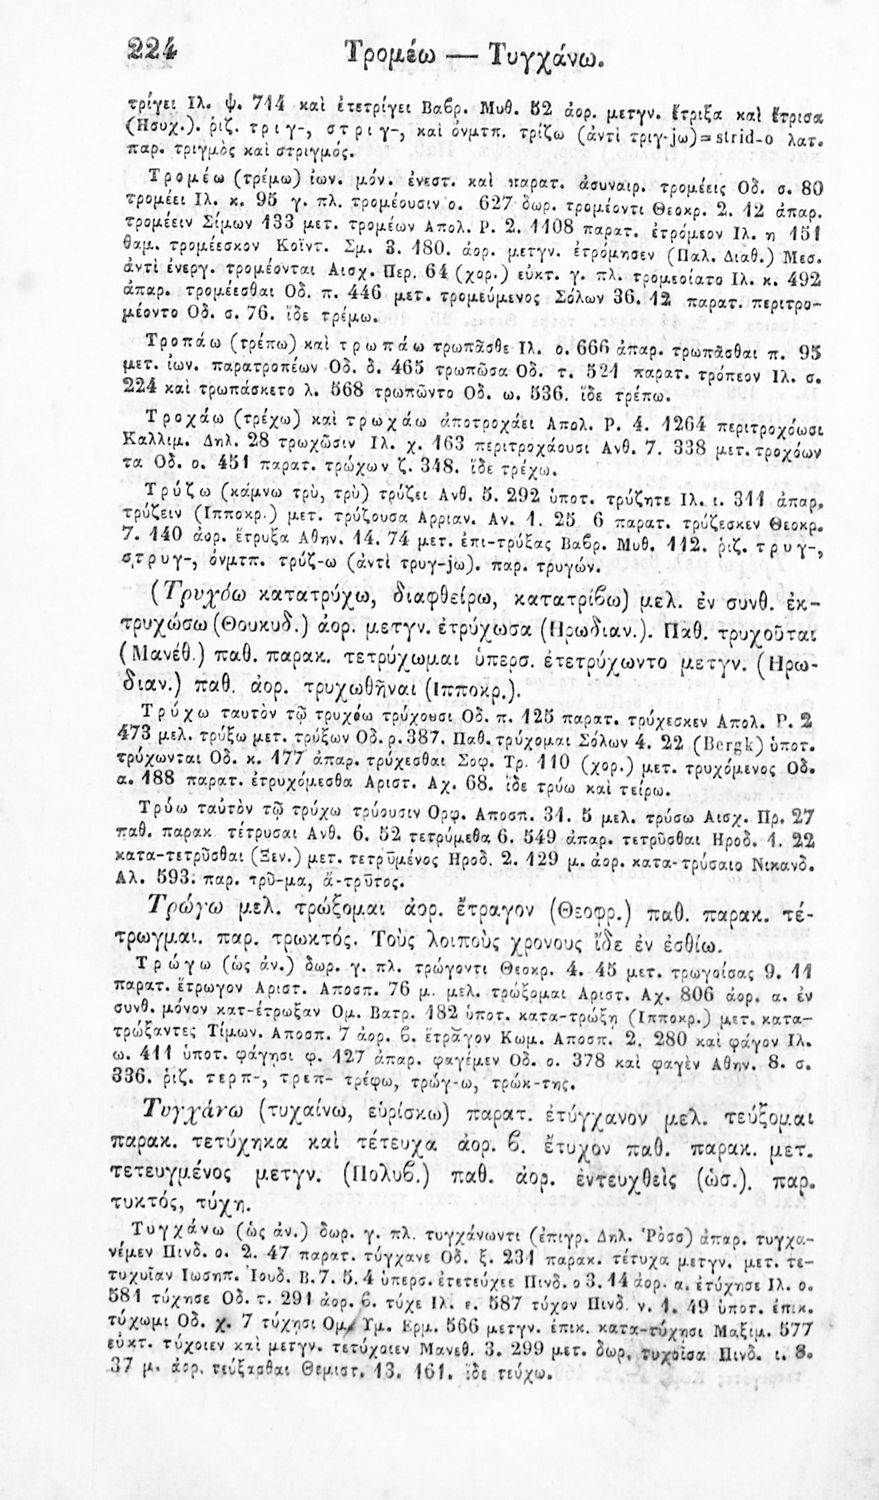 224
Τρομέω — Τυγχάνω.
τρίγει Ιλ. ψ. 714 καὶ ἐτετρίγει Βαβρ. Μυθ. 52 ἀορ. μετγν. ἔτριξα καὶ ἔτρισα
(Ησυχ.). ῥιζ. τριγ-, στριγ-, καὶ ὀνμτπ. τρίζω (ἀντὶ τριγ-jω)=strid-o λατ.
παρ. τριγμὸς καὶ στριγμός.
Τρομέω (τρέμω) ἰων. μόν. ἐνεστ. καὶ παρατ. ἀσυναιρ. τρομέεις Οδ. σ. 80
τρομέει Ιλ. κ. 95 γ. πλ. τρομέουσιν ο. 627 δωρ. τρομέοντι Θεοκρ. 2. 12 ἀπαρ.
τρομέειν Σίμων 133 μετ. τρομέων Απολ. Ρ. 2. 1108 παρατ. ἐτρόμεον Ιλ. η 151
θαμ. τρομέεσκον Κοίντ. Σμ. 3. 180. ἀορ. μετγν. ἐτρόμησεν (Παλ. Διαθ.) Μεσ.
ἀντὶ ἐνεργ. τρομέονται Αισχ. Περ. 64 (χορ.) εὐκτ. γ. πλ. τρομεοίατο Ιλ. κ. 492
ἀπαρ. τρομέεσθαι Οδ. π. 446 μετ. τρομεύμενος Σόλων 36. 12 παρατ. περιτρο-
μέοντο Οδ. σ. 76. ἴδε τρέμω.
Τροπάω (τρέπω) καὶ τρωπάω τρωπᾶσθε Ιλ. ο. 666 ἀπαρ. τρωπᾶσθαι π. 95
μετ. ἰων. παρατροπέων Οδ. δ. 465 τρωπῶσα Οδ. τ. 521 παρατ. τρόπεον Ιλ. σ.
224 καὶ τρωπάσκετο λ. 568 τρωπῶντο Οδ. ω. 536. ἴδε τρέπω.
Τροχάω (τρέχω) καὶ τρωχάω ἀποτροχάει Απολ. Ρ. 4. 1264 περιτροχόωσι
Καλλιμ. Δηλ. 28 τρωχῶσιν Ιλ. χ. 163 περιτροχάουσι Ανθ. 7. 338 μετ. τροχόων
τα Οδ. ο. 451 παρατ. τρώχων ζ. 348. ἴδε τρέχω.
Τρύζω (κάμνω τρὺ, τρὺ) τρύζει Ανθ. 5. 292 ὑποτ. τρύζητε Ιλ. ι. 311 ἀπαρ.
τρύζειν (Ιπποκρ.) μετ. τρύζουσα Αρριαν. Αν. 1. 25 6 παρατ. τρύζεσκεν Θεοκρ.
7. 140 ἀορ. ἔτρυξα Αθην. 14. 74 μετ. ἐπι-τρύξας Βαβρ. Μυθ. 112. ῥιζ. τρυγ-,
στρυγ-, ὀνμτπ. τρύζ-ω (ἀντὶ τρυγ-jω). παρ. τρυγών.
(Τρυχόω κατατρύχω, διαφθείρω, κατατρίβω) μελ. ἐν συνθ. ἐκ-
τρυχώσω (Θουκυδ.) ἀορ. μετγν. ἐτρύχωσα (Ηρωδιαν.). Παθ. τρυχοῦται
(Μανέθ.) παθ. παρακ. τετρύχωμαι ὑπερσ. ἐτετρύχωντο μετγν. (Ηρω-
διαν.) παθ. ἀορ. τρυχωθῆναι (Ιπποκρ.).
Τρύχω ταυτὸν τῷ τρυχόω τρύχουσι Οδ. π. 125 παρατ. τρύχεσκεν Απολ. Ρ. 2
473 μελ. τρύξω μετ. τρύξων Οδ. ρ. 387. Παθ. τρύχομαι Σόλων 4. 22 (Bergk) ὑποτ.
τρύχωνται Οδ. κ. 177 ἀπαρ. τρύχεσθαι Σοφ. Τρ. 110 (χορ.) μετ. τρυχόμενος Οδ.
α. 188 παρατ. ἐτρυχόμεσθα Αριστ. Αχ. 68. ἴδε τρύω καὶ τείρω.
Τρύω ταὐτὸν τῷ τρύχω τρύουσιν Ορφ. Αποσπ. 31. 5 μελ. τρύσω Αισχ. Πρ. 27
παθ. παρακ. τέτρυσαι Ανθ. 6. 52 τετρύμεθα 6. 549 ἀπαρ. τετρῦσθαι Ηροδ. 1. 22
κατα-τετρῦσθαι (Ξεν.) μετ. τετρῡμένος Ηροδ. 2. 129 μ. ἀορ. κατα-τρύσαιο Νικανδ.
Αλ. 593. παρ. τρῦ-μα, ἄ-τρῡτος.
Τρώγω μελ. τρώξομαι ἀορ. ἔτραγον (Θεοφρ.) παθ. παρακ. τέ-
τρωγμαι. παρ. τρωκτός. Τοὺς λοιποὺς χρονους ἴδε ἐν ἐσθίω.
Τρώγω (ὡς ἀν.) δωρ. γ. πλ. τρώγοντι Θεοκρ. 4. 45 μετ. τρωγοίσας 9. 11
παρατ. ἔτρωγον Αριστ. Αποσπ. 76 μ. μελ. τρώξομαι Αριστ. Αχ. 806 ἀορ. α. ἐν
συνθ. μόνον κατ-έτρωξαν Ομ. Βατρ. 182 ὑποτ. κατα-τρώξῃ (Ιπποκρ.) μετ. κατα-
τρώξαντες Τίμων. Αποσπ. 7 ἀορ. β. ἔτρᾰγον Κωμ. Αποσπ. 2. 280 καὶ φάγον Ιλ.
ω. 411 ὑποτ. φάγησι φ. 127 ἀπαρ. φαγέμεν Οδ. ο. 378 καὶ φαγὲν Αθην. 8. σ.
336. ῥιζ. τερπ-, τρεπ- τρέφω, τρώγ-ω, τρώκ-της.
Τυγχάνω (τυχαίνω, εὑρίσκω) παρατ. ἐτύγχανον μελ. τεύξομαι
παρακ. τετύχηκα καὶ τέτευχα ἀορ. β. ἔτυχον παθ. παρακ. μετ.
τετευγμένος μετγν. (Πολυβ.) παθ. ἀορ. ἐντευχθεὶς (ὡσ.). παρ.
τυκτός, τύχη.
Τυγχάνω (ὡς ἀν.) δωρ. γ. πλ. τυγχάνωντι (ἐπιγρ. Δηλ. Ῥόσσ) ἀπαρ. τυγχα-
νέμεν Πινδ. ο. 2. 47 παρατ. τύγχανε Οδ. ξ. 231 παρακ. τέτυχα μετγν. μετ. τε-
τυχυῖαν Ιωσηπ. Ἰουδ. Β. 7. 5. 4 ὑπερσ. ἐτετεύχεε Πινδ. ο 3. 14 ἀορ. α. ἐτύχησε Ιλ. ο.
581 τύχησε Οδ. τ. 291 ἀορ. β. τύχε Ιλ. ε. 587 τύχον Πινδ. ν. 1. 49 ὑποτ. ἐπικ.
τύχωμι Οδ. χ. 7 τύχησι Ομ. Υμ. Ερμ. 566 μετγν. ἐπικ. κατα-τύχησι Μαξιμ. 577
εὐκτ. τύχοιεν καὶ μετγν. τετύχοιεν Μανεθ. 3. 299 μετ. δωρ. τυχοῖσα Πινδ. ι. 8.
37 μ. ἀορ. τεύξασθαι Θεμιστ. 13. 161. ἴδε τεύχω.